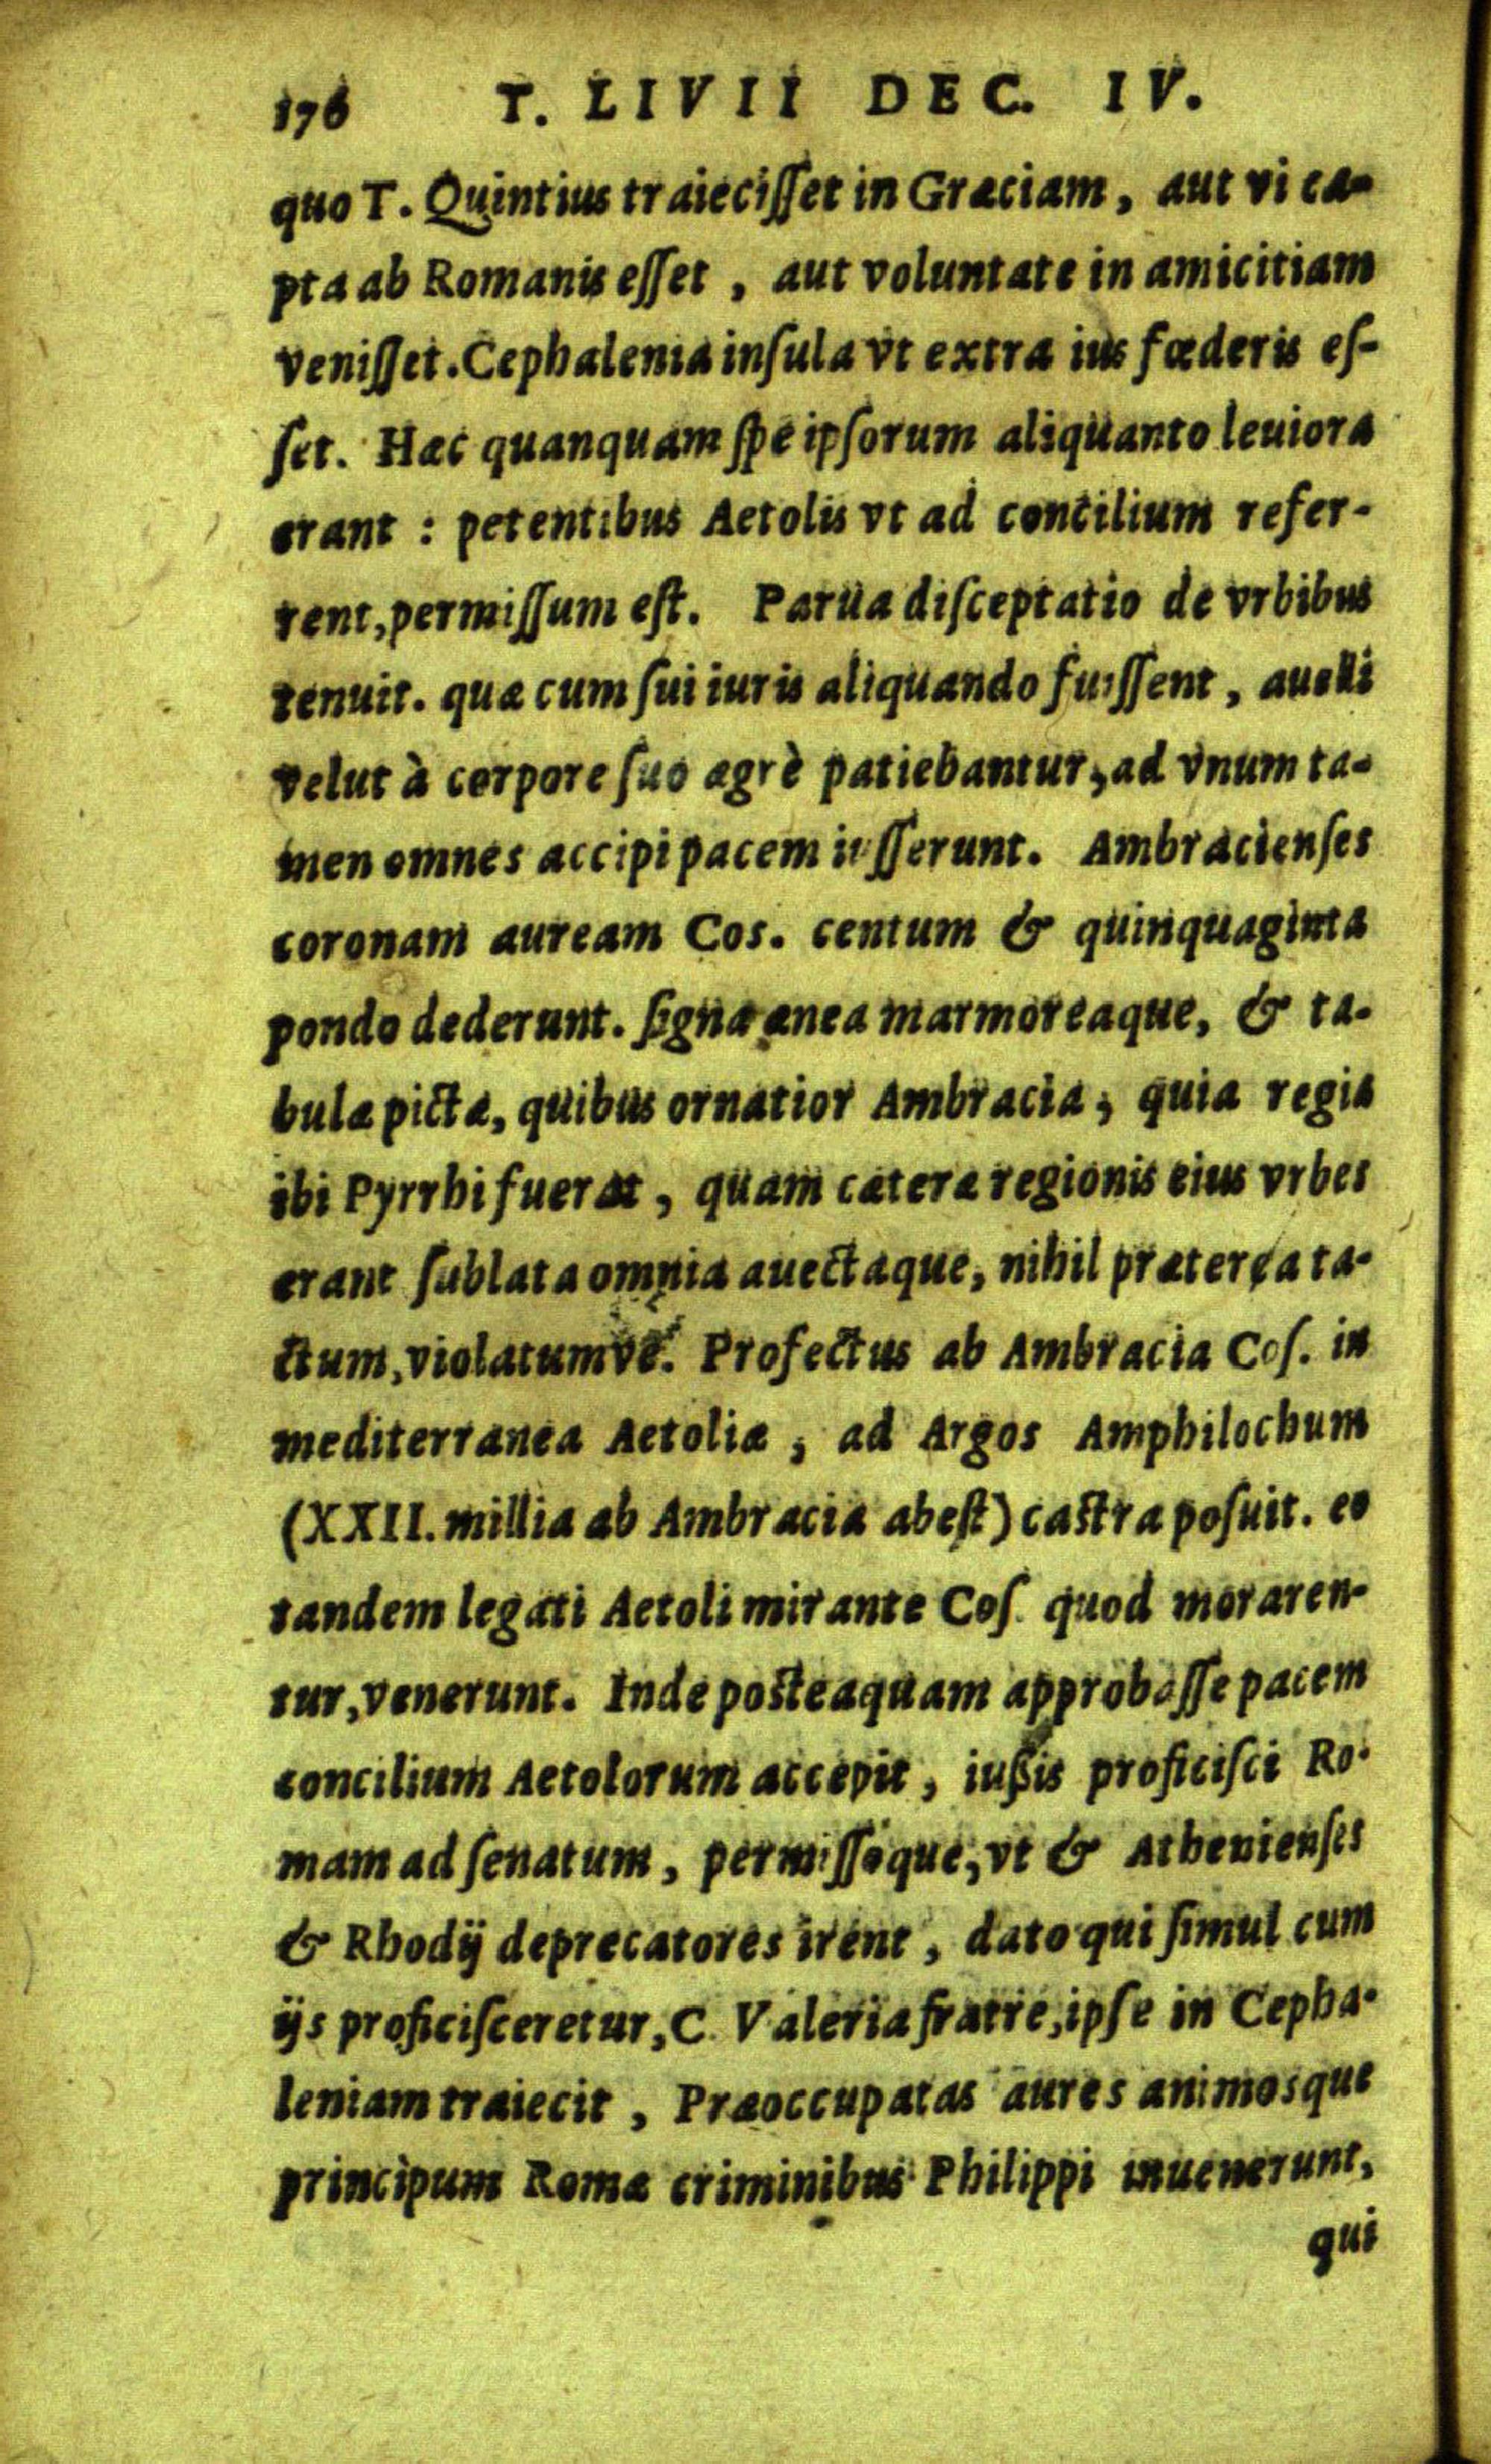 176 T. LIVII DEC. IV.
quo T. Quintius traiecisſet in Græciam, aut vi ca-
pta ab Romanis eſſet, aut voluntate in amicitiam
veniſſet. Cephalenia inſula vt extra ius fœderis eſ-
ſet. Hæc quanquam ſpe ipſorum aliquanto leuiora
erant : petentibus Aetolis vt ad concilium refer-
rent, permiſſum eſt. Parua diſceptatio de vrbibus
tenuit. quæ cum ſui iuris aliquando fuiſſent, auelli
velut à corpore ſuo ægrè patiebantur, ad vnum ta-
men omnes accipi pacem iuſſerunt. Ambracienſes
coronam auream Cos. centum & quinquaginta
pondo dederunt. ſigna ænea marmoreaque, & ta-
bulæ pictæ, quibus ornatior Ambracia, quia regia
ibi Pyrrhi fuerat, quam cæteræ regionis eius vrbes
erant ſublata omnia auectaque, nihil præterea ta-
ctum, violatumve. Profectus ab Ambracia Coſ. in
mediterranea Aetoliæ, ad Argos Amphilochum
(XXII. millia ab Ambracia abeſt) caſtra poſuit. eo
tandem legati Aetoli mirante Coſ. quod moraren-
tur, venerunt. Inde poſteaquam approbaſſe pacem
concilium Aetolorum accepit, iußis proficiſci Ro-
mam ad ſenatum, permiſſoque, vt & Athenienſes
& Rhodij deprecatores irent, dato qui ſimul cum
ijs proficiſceretur, C. Valeria fratre, ipſe in Cepha-
leniam traiecit, Præoccupatas aures animosque
principum Romæ criminibus Philippi inuenerunt,
qui